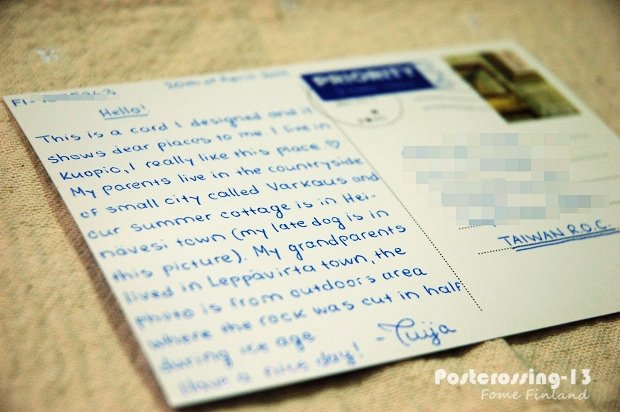 FI-
20th of April
Hello!
This is a card I designed and it
shows dear places to me. I live in
Kuopio, I really like this place ♡
My parents live in the countryside
of small city called Varkaus and
our summer cottage is in Hei-
nävesi town (my late dog is in
this picture). My grandparents
lived in Leppävirta town, the
photo is from outdoors area
where the rock was cut in half
during ice age
Have a nice day! - Tuija
PRIORITY
TAIWAN R.O.C.
Postcrossing-13
Fome Finland